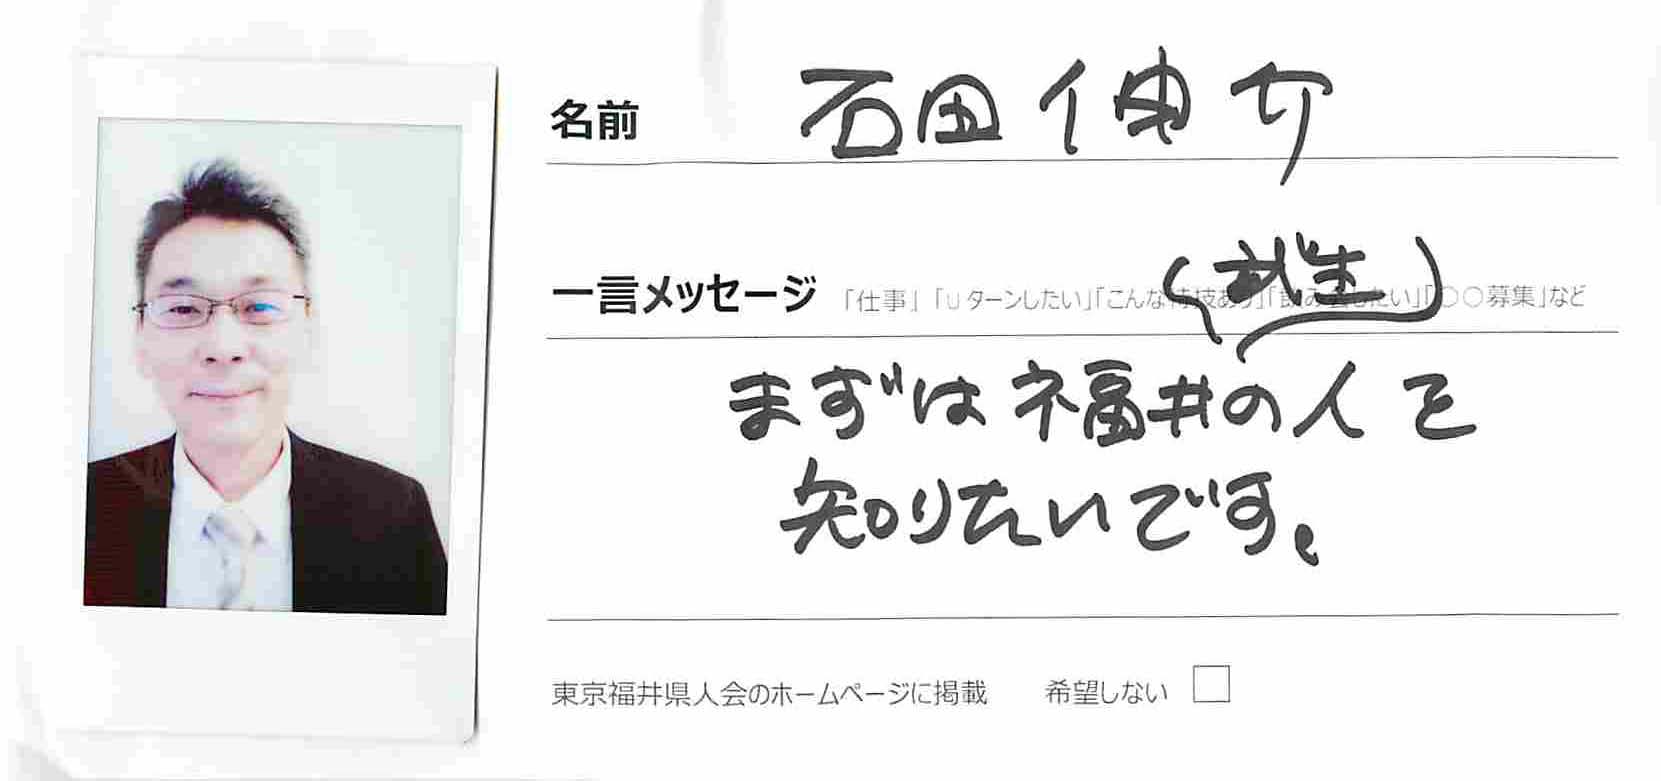 名前 石田伸介
一言メッセージ 「仕事」「Uターンしたい」「こんな特技あり」「飲み会したい」「○○募集」など
(武生)
まずは福井の人を
知りたいです。
東京福井県人会のホームページに掲載 希望しない □